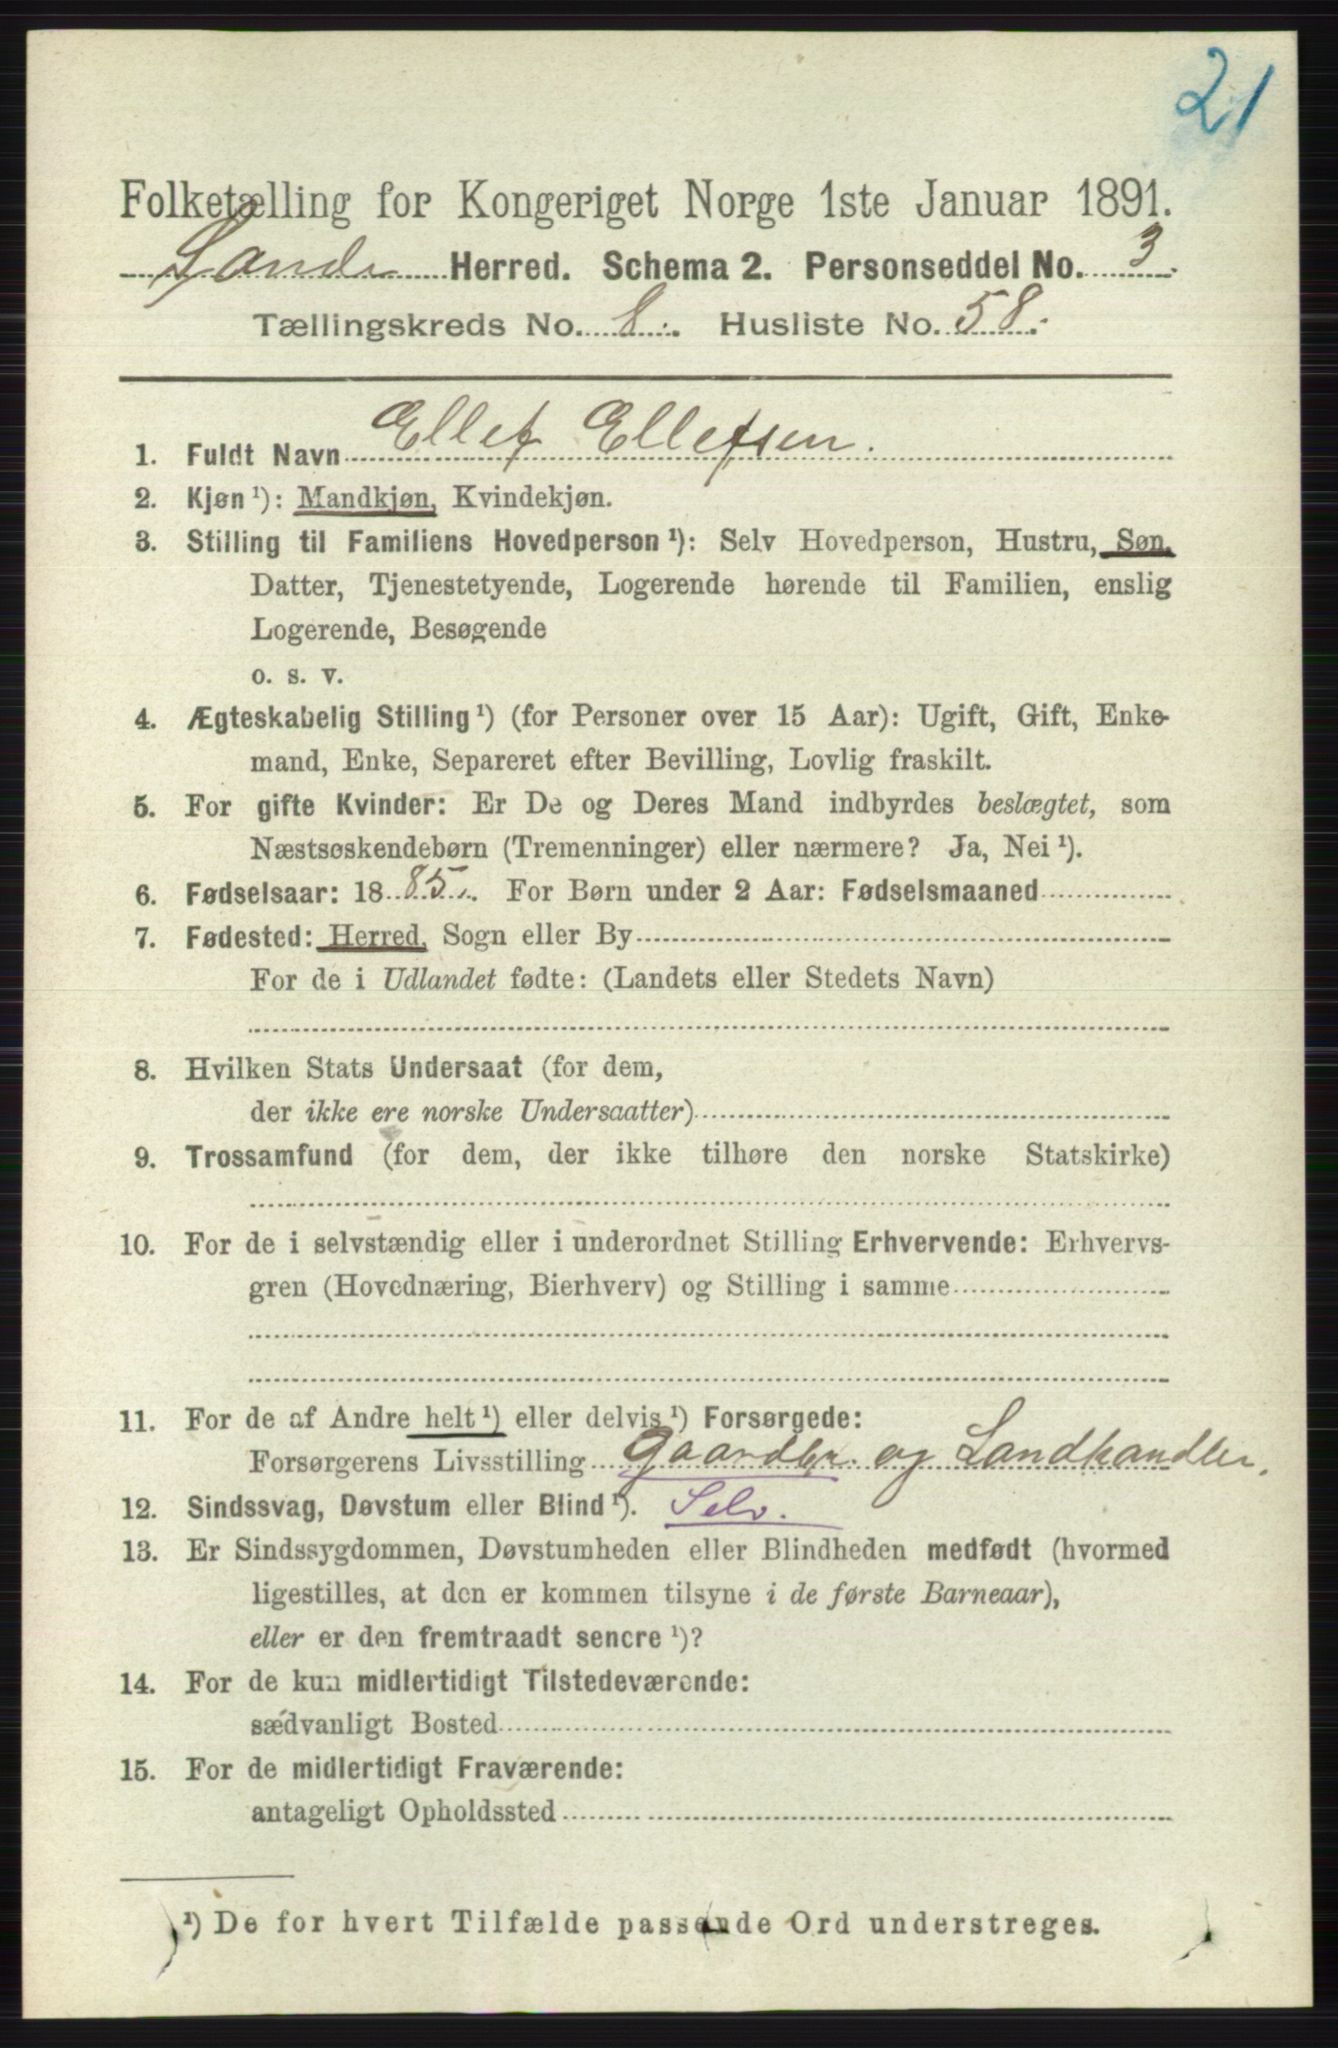 21
Folketælling for Kongeriget Norge 1ste Januar 1891.
Sande Herred. Schema 2. Personseddel No. 3.
Tællingskreds No. 8. Husliste No. 58.
1. Fuldt Navn Ellef Ellefsen.
2. Kjøn¹): Mandkjøn, Kvindekjøn.
3. Stilling til Familiens Hovedperson¹): Selv Hovedperson, Hustru, Søn,
Datter, Tjenestetyende, Logerende hørende til Familien, enslig
Logerende, Besøgende
o. s. v.
4. Ægteskabelig Stilling¹) (for Personer over 15 Aar): Ugift, Gift, Enke-
mand, Enke, Separeret efter Bevilling, Lovlig fraskilt.
5. For gifte Kvinder: Er De og Deres Mand indbyrdes beslægtet, som
Næstsøskendebørn (Tremenninger) eller nærmere? Ja, Nei¹).
6. Fødselsaar: 1885. For Børn under 2 Aar: Fødselsmaaned
7. Fødested: Herred, Sogn eller By
For de i Udlandet fødte: (Landets eller Stedets Navn)
8. Hvilken Stats Undersaat (for dem,
der ikke ere norske Undersaatter)
9. Trossamfund (for dem, der ikke tilhøre den norske Statskirke)
10. For de i selvstændig eller i underordnet Stilling Erhvervende: Erhvervs-
gren (Hovednæring, Bierhverv) og Stilling i samme
11. For de af Andre helt¹) eller delvis¹) Forsørgede:
Forsørgerens Livsstilling Gaardbr. og Landhandler.
12. Sindssvag, Døvstum eller Blind¹). Selv.
13. Er Sindssygdommen, Døvstumheden eller Blindheden medfødt (hvormed
ligestilles, at den er kommen tilsyne i de første Barneaar),
eller er den fremtraadt senere¹)?
14. For de kun midlertidigt Tilstedeværende:
sædvanligt Bosted
15. For de midlertidigt Fraværende:
antageligt Opholdssted
¹) De for hvert Tilfælde passende Ord understreges.